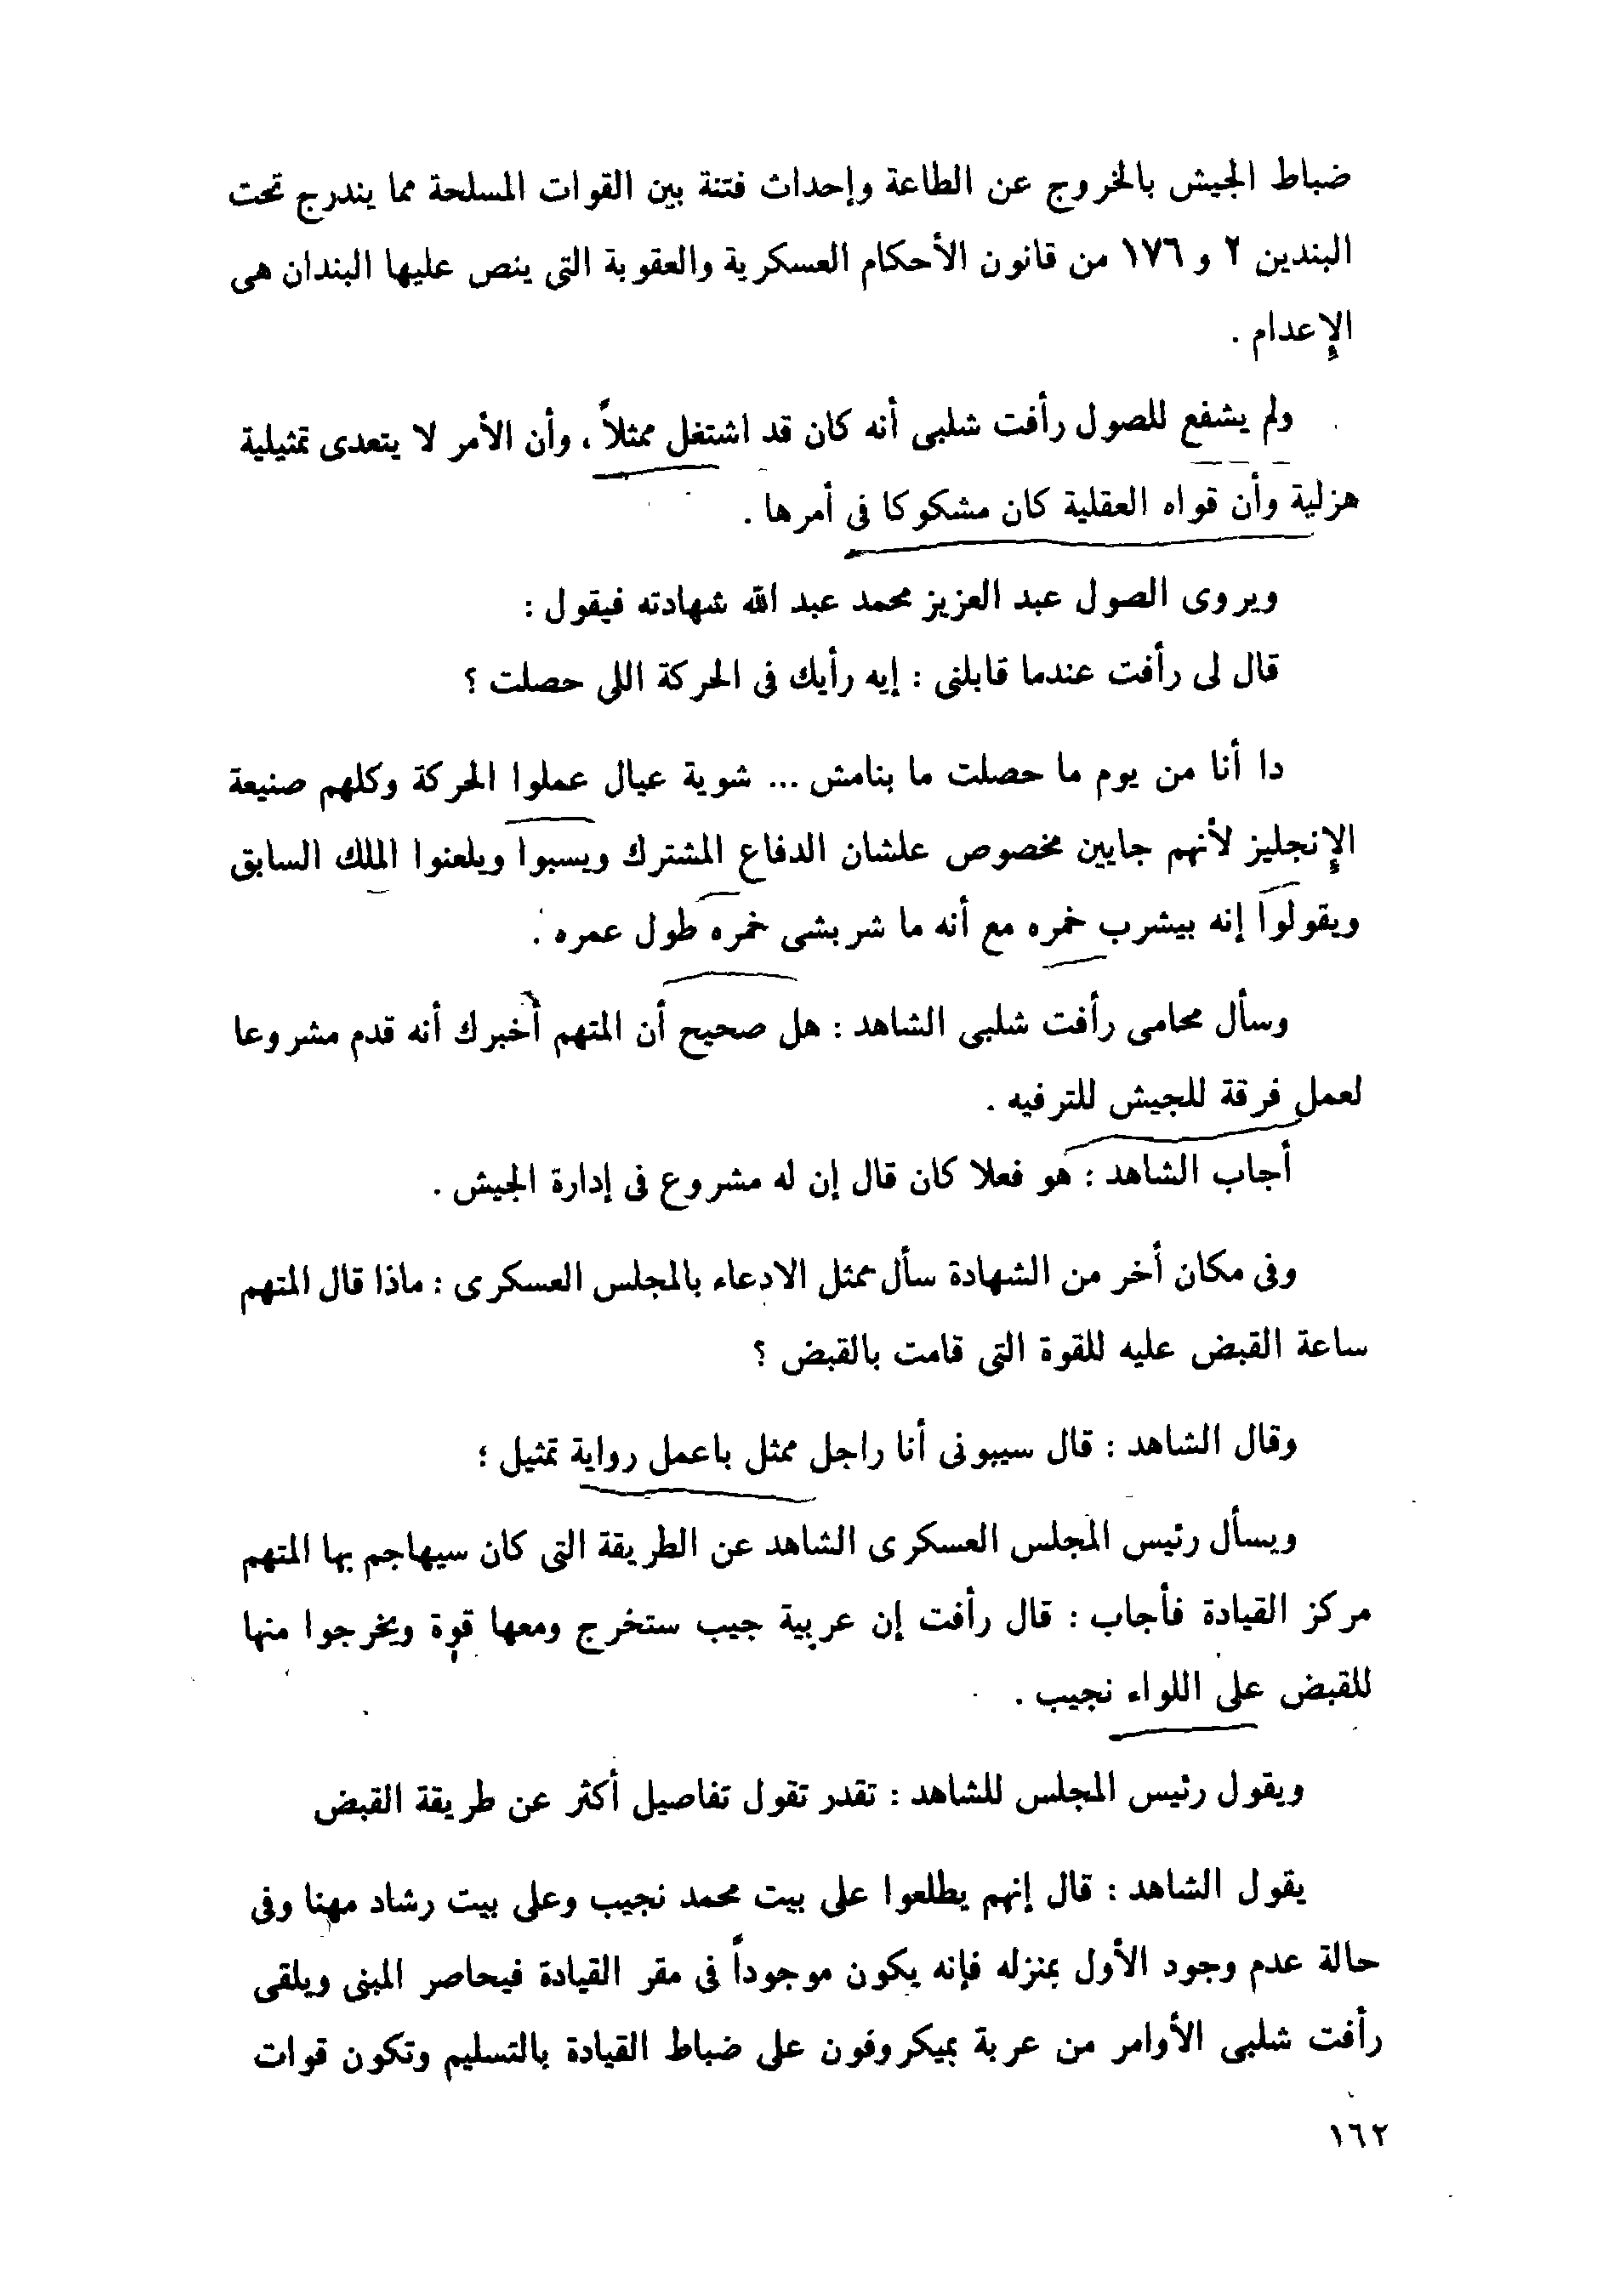 ضباط الجيش بالخروج عن الطاعة وإحداث فتنة بين القوات المسلحة مما يندرج تحت
البندين ٢ و ١٧٦ من قانون الأحكام العسكرية والعقوبة التى ينص عليها البندان هى
الإعدام .
ولم يشفع للصول رأفت شلبى أنه كان قد اشتغل ممثلاً ، وأن الأمر لا يتعدى تمثيلية
هزلية وأن قواه العقلية كان مشكوكا فى أمرها .
ويروى الصول عبد العزيز محمد عبد الله شهادته فيقول :
قال لى رأفت عندما قابلنى : إيه رأيك فى الحركة اللى حصلت ؟
دا أنا من يوم ما حصلت ما بنامش ... شوية عيال عملوا الحركة وكلهم صنيعة
الإنجليز لأنهم جايين مخصوص علشان الدفاع المشترك ويسبوا ويلعنوا الملك السابق
ويقولوا إنه بيشرب خمره مع أنه ما شربشى خمره طول عمره .
وسأل محامى رأفت شلبى الشاهد : هل صحيح أن المتهم أخبرك أنه قدم مشروعا
لعمل فرقة للجيش للترفيه .
أجاب الشاهد : هو فعلا كان قال إن له مشروع فى إدارة الجيش .
وفى مكان أخر من الشهادة سأل ممثل الادعاء بالمجلس العسكرى : ماذا قال المتهم
ساعة القبض عليه للقوة التى قامت بالقبض ؟
وقال الشاهد : قال سيبونى أنا راجل ممثل باعمل رواية تمثيل ؛
ويسأل رئيس المجلس العسكرى الشاهد عن الطريقة التى كان سيهاجم بها المتهم
مركز القيادة فأجاب : قال رأفت إن عربية جيب ستخرج ومعها قوة ويخرجوا منها
للقبض على اللواء نجيب .
ويقول رئيس المجلس للشاهد : تقدر تقول تفاصيل أكثر عن طريقة القبض
يقول الشاهد : قال إنهم يطلعوا على بيت محمد نجيب وعلى بيت رشاد مهنا وفى
حالة عدم وجود الأول بمنزله فإنه يكون موجوداً فى مقر القيادة فيحاصر المبنى ويلقى
رأفت شلبى الأوامر من عربة بميكروفون على ضباط القيادة بالتسليم وتكون قوات
١٦٢